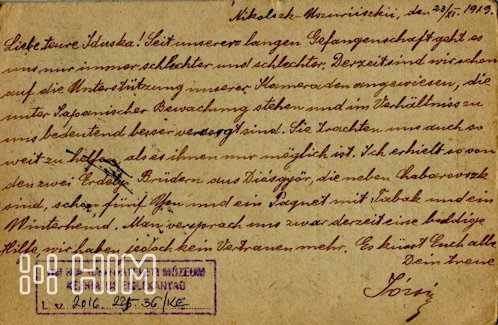 Nikolsk-Ussuriiskii, den 23/XI. 1919.
Liebe teure Iduska! Seit unserer langen Gefangenschaft geht es
uns nur immer schlechter und schlechter. Derzeit sind wir schon
auf die Unterstützung unserer Kameraden angewiesen, die
unter Japanischer Bewachung stehen und im Verhältniss zu
uns bedeutend besser versorgt sind. Sie trachten uns auch so
weit zu helfen, als es ihnen nur möglich ist. Ich erhielt so von
den zwei Erdélyi Brüdern aus Diósgyőr, die neben Chabarovszk
sind, schon fünf Yen und ein Paquet mit Tabak und ein
Winterhemd. Man versprach uns zwar derzeit eine baldige
Hilfe, wir haben jedoch kein Vertrauen mehr. Es küsst Euch alle
Dein treue
Józsi
HIM
MÚZEUM
KÉZIRATOS EMLÉKANYAG
l. sz. 2016. 225. 36/KE